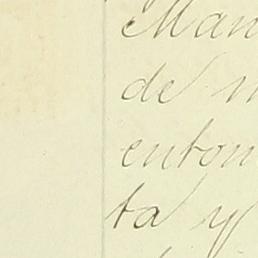 Man
de
enton
ta y